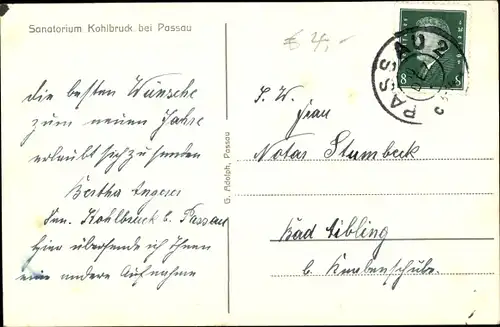 Sanatorium Kohlbruck bei Passau
€ 4,-
PASSAU 2
8
8
die besten Wünsche
zum neuen Jahre
erlaubt sich zu senden
Bertha
San. Kohlbruck b. Passau
Hier übersende ich Ihnen
eine andere Aufnahme
G. Adolph, Passau
S. W.
Frau
Notar Stumbeck
Bad Aibling
b. Knabenschule.